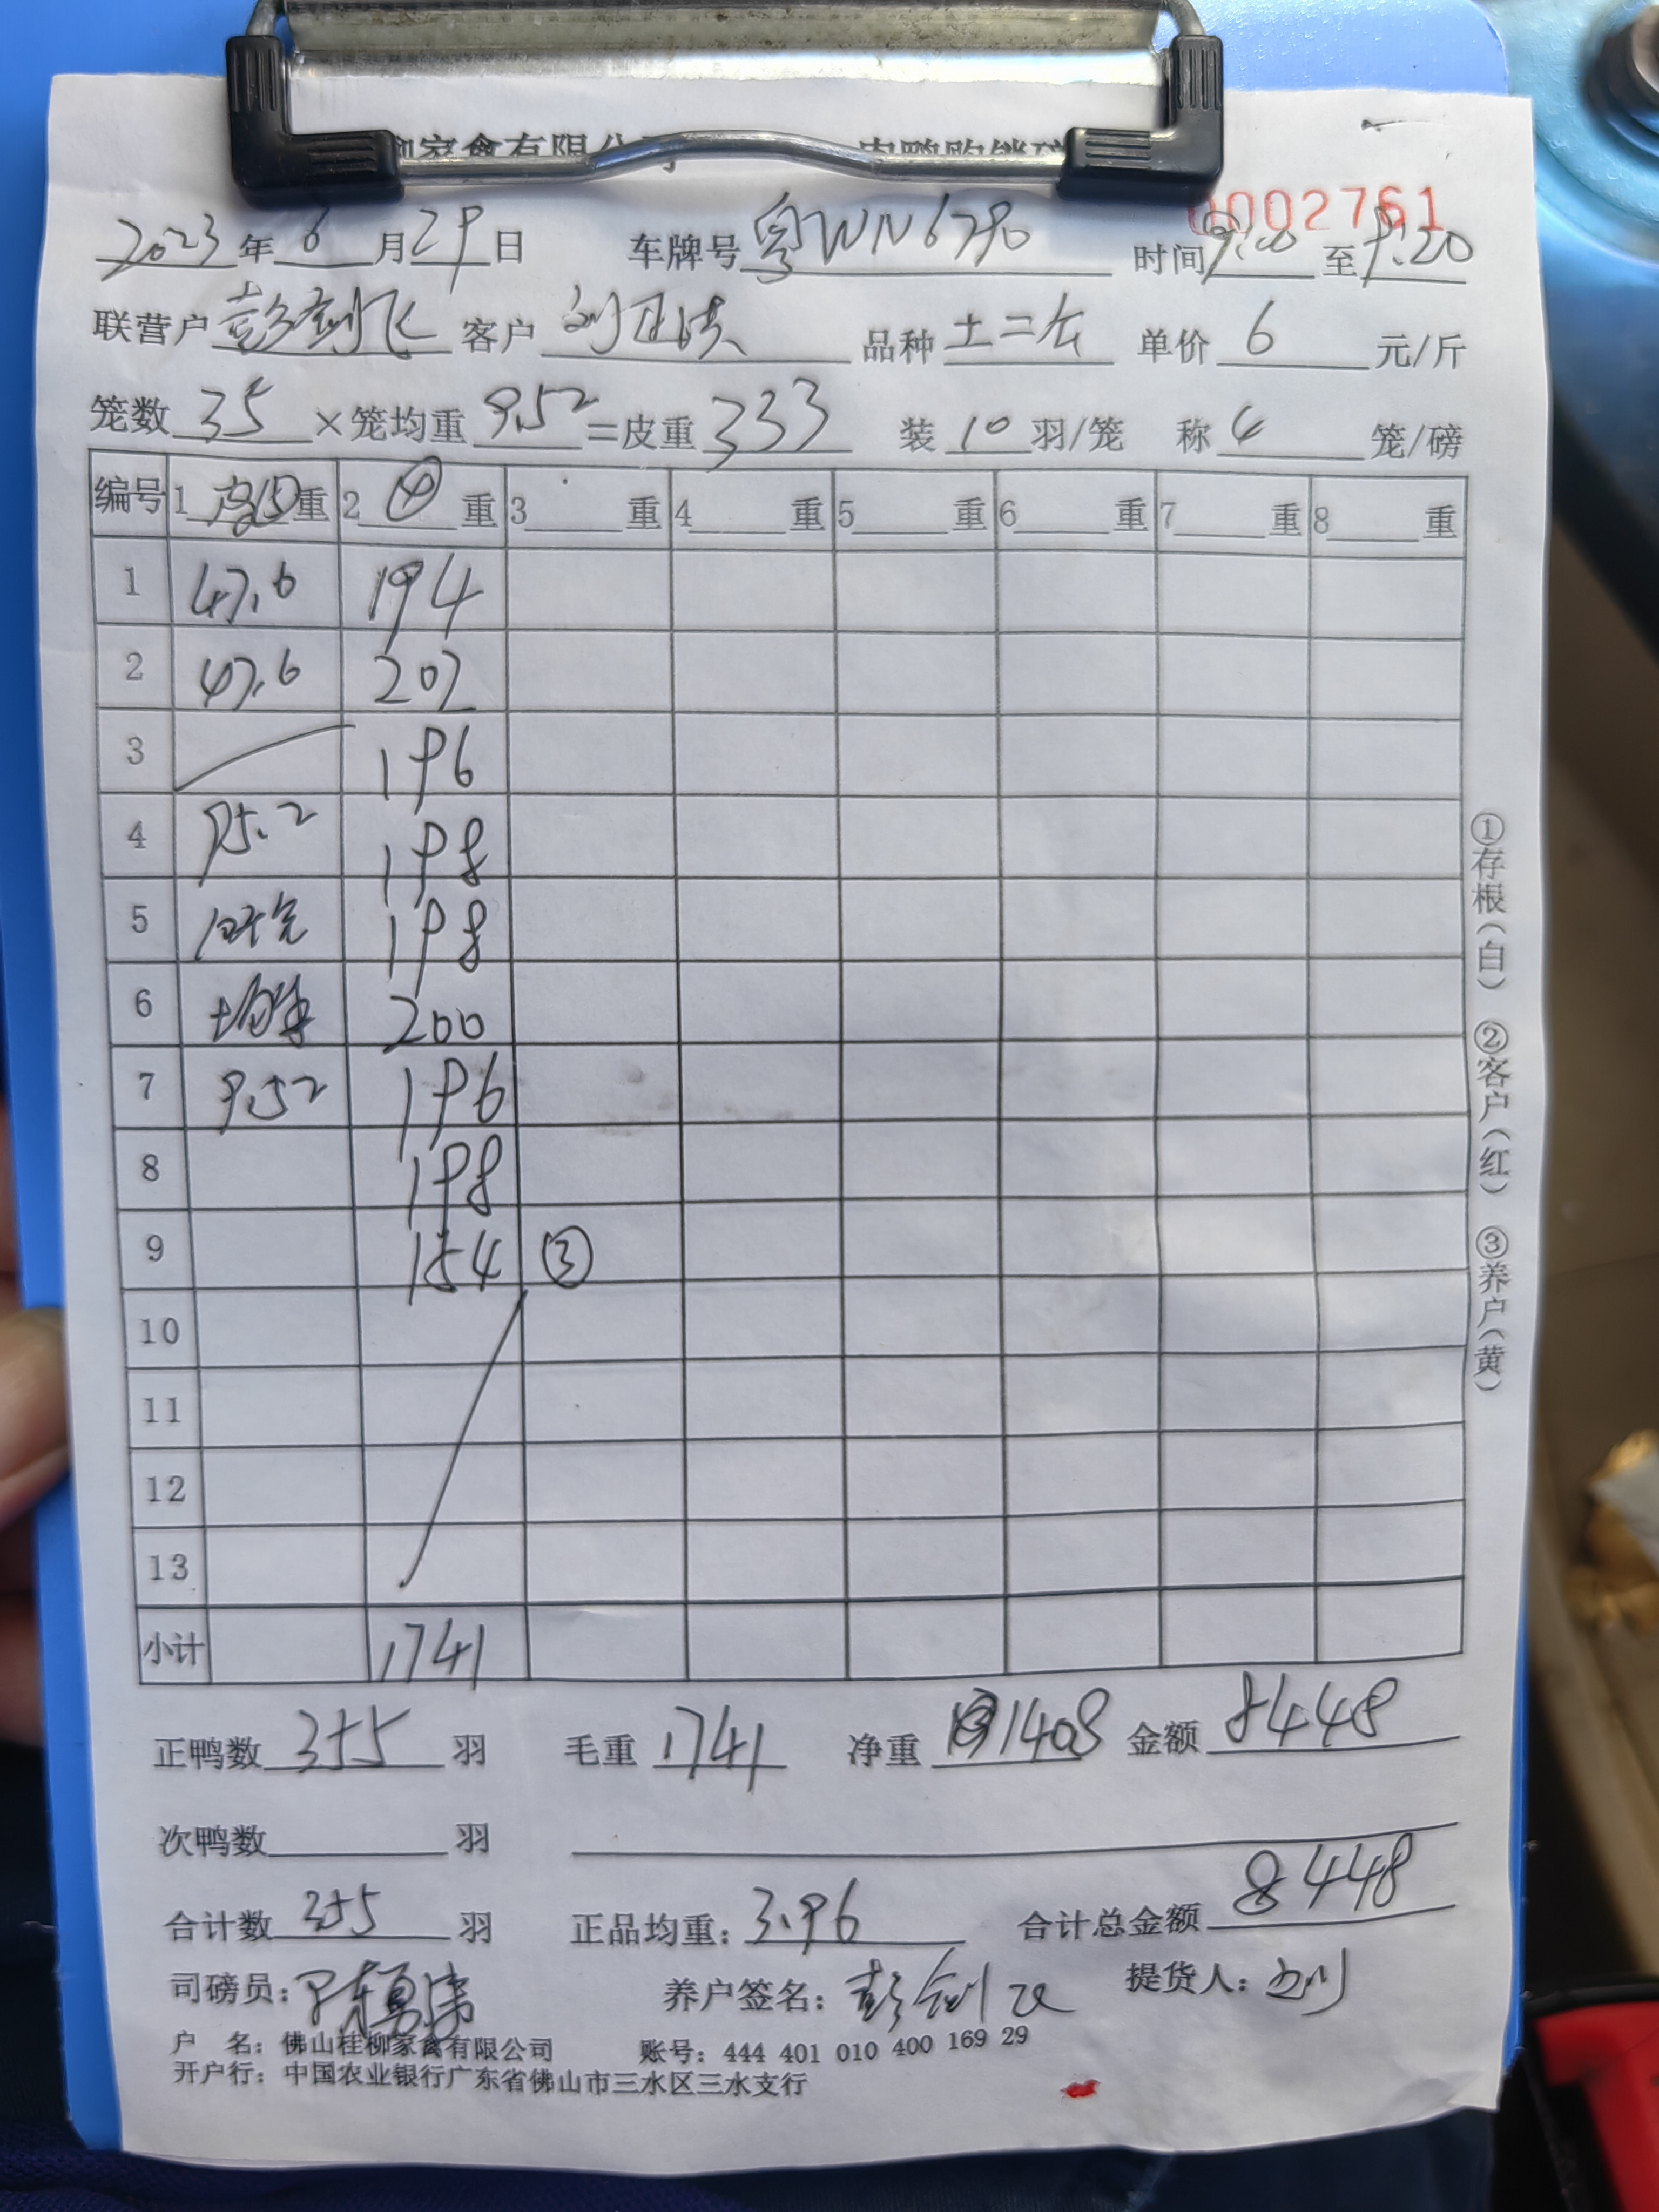 柳家禽有限公司 肉鸭购销磅
0002761
2023年6月29日 车牌号粤WN6790 时间9:00至9:20
联营户彭剑飞 客户刘正洪 品种土二公 单价6元/斤
笼数35×笼均重9.52=皮重333 装10羽/笼 称4笼/磅
编号 1 皮⑤重 2 ④ 重 3 重 4 重 5 重 6 重 7 重 8 重
1 47.6 194
2 47.6 207
3 196
4 95.2 198
5 198
6 200
7 9.52 196
8 198
9 154 ③
10
11
12
13
小计 1741
正鸭数355羽 毛重1741 净重1408 金额8448
次鸭数 羽
合计数355羽 正品均重：3.96 合计总金额8448
司磅员： 养户签名：彭剑飞 提货人：
户 名：佛山桂柳家禽有限公司 账号：444 401 010 400 169 29
开户行：中国农业银行广东省佛山市三水区三水支行
①存根（白） ②客户（红） ③养户（黄）